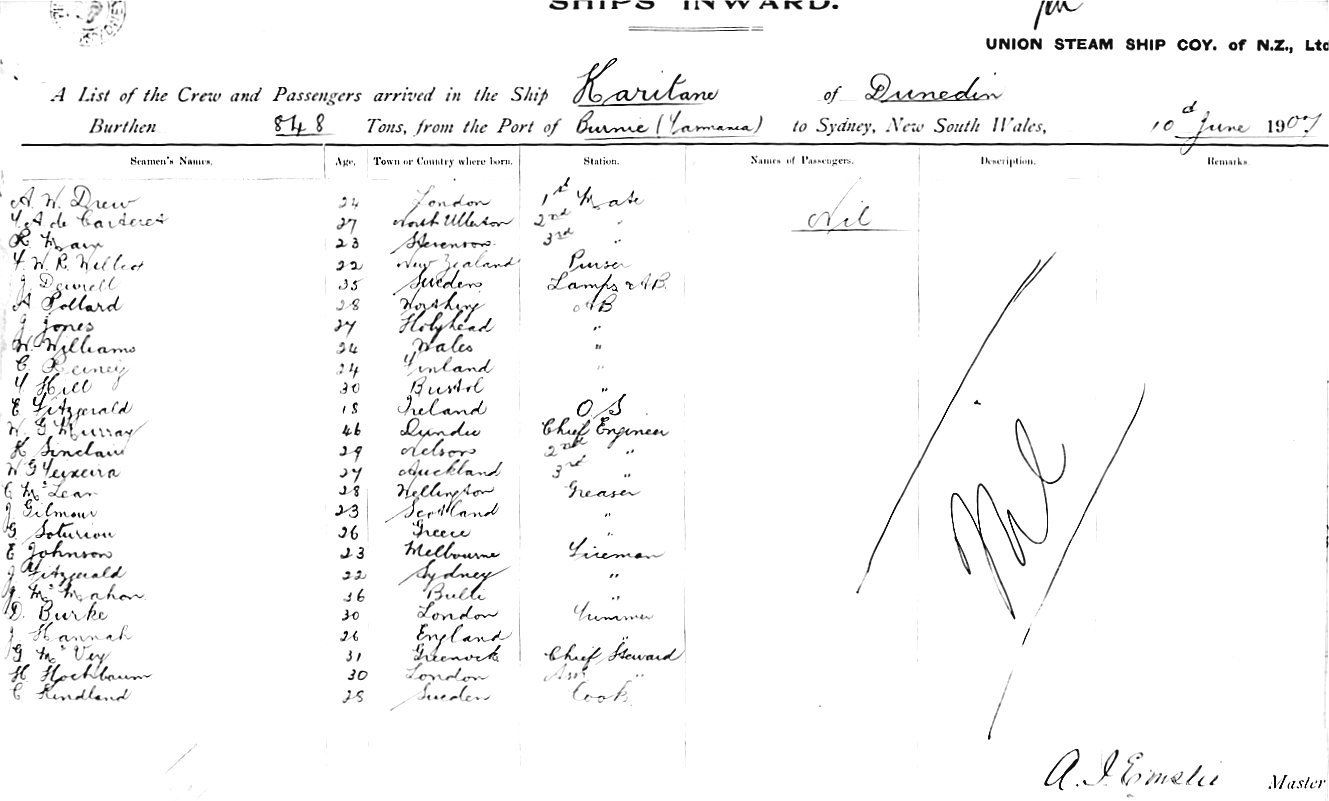 SHIPS INWARD.
UNION STEAM SHIP COY. of N.Z., Ltd
A List of the Crew and Passengers arrived in the Ship Karitane of Dunedin
Burthen 848 Tons, from the Port of Burnie (Tasmania) to Sydney, New South Wales, 10d June 1907
Seamen's Names. Age. Town or Country where born. Station. Names of Passengers. Description. Remarks.
A. W. Drew 24 London 1st Mate
de Carteret 27 North 2nd " Nil
R. 23 3rd "
W. R. 22 New Zealand Purser
J. 35 Sweden Lamps & AB
A Pollard 28 Worthing AB
J Jones 27 Holyhead "
W. Williams 24 Wales "
C. 24 Finland "
F Hill 30 Bristol "
E Fitzgerald 18 Ireland O/S
W. G Murray 46 Dundee Chief Engineer
K Sinclair 29 Nelson 2nd "
W G Teixeira 27 Auckland 3rd "
C McLean 28 Wellington Greaser
J Gilmour 23 Scotland "
G. Soturiou 26 Greece "
E Johnson 23 Melbourne Fireman
J Fitzgerald 22 Sydney "
J. McMahon 36 Bulli "
D. Burke 30 London Trimmer
J Hannah 26 England "
G McVey 31 Greenock Chief Steward
H Hochbaum 30 London Asst "
C Kindland 28 Sweden Cook
Nil
A. I. Emslie Master